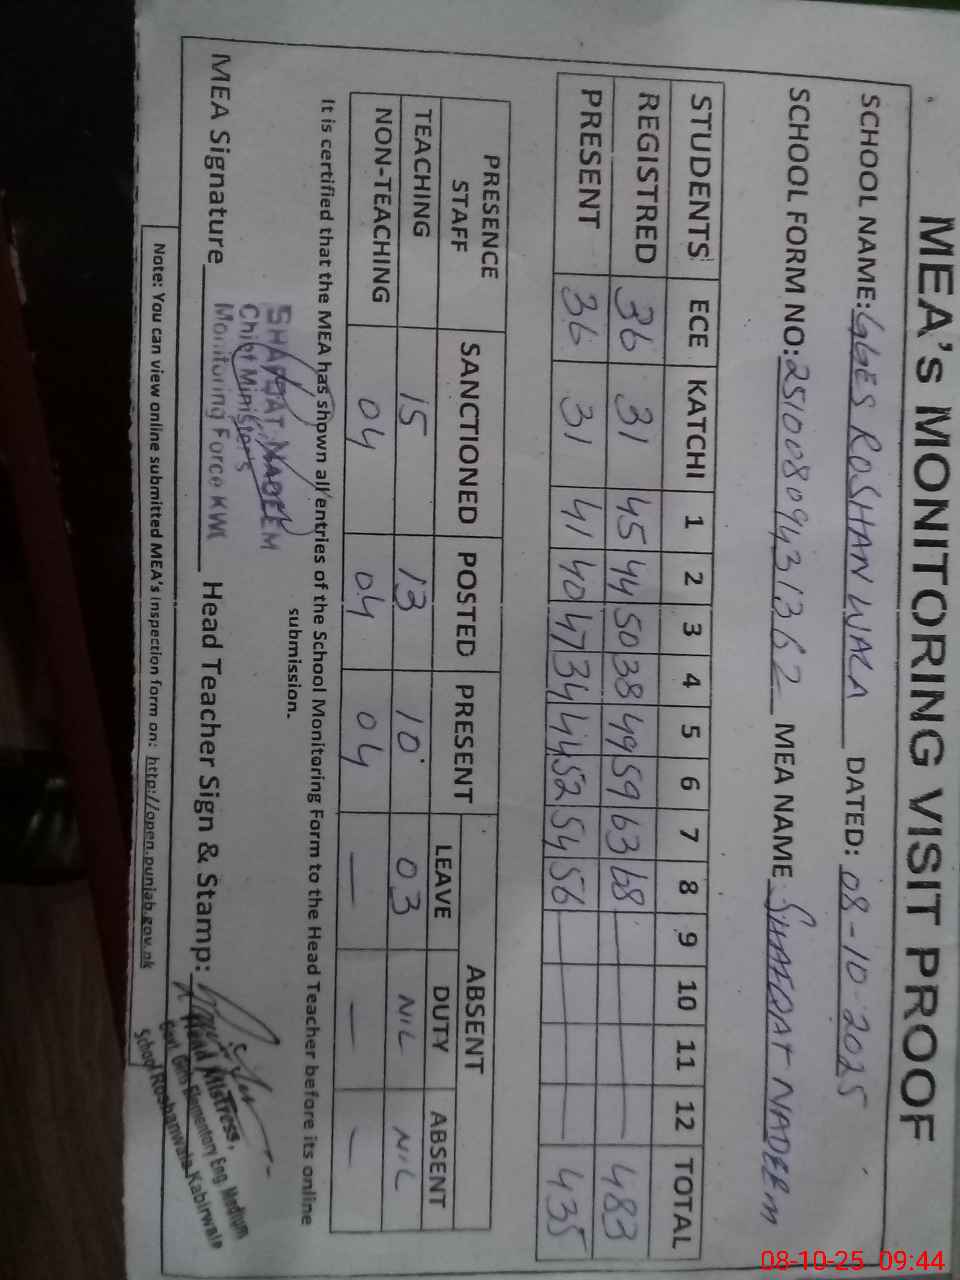 MEA's MONITORING VISIT PROOF
SCHOOL NAME: GGES ROSHAN WALA DATED: 08-10-2025
SCHOOL FORM NO: 25100809431362 MEA NAME SHAFQAT NADEEM
STUDENTS ECE KATCHI 1 2 3 4 5 6 7 8 9 10 11 12 TOTAL
REGISTRED 36 31 45 44 50 38 49 59 63 68 — 483
PRESENT 36 31 41 40 47 34 44 52 54 56 — 435
PRESENCE STAFF SANCTIONED POSTED PRESENT ABSENT
LEAVE DUTY ABSENT
TEACHING 15 13 10 03 NIL NIL
NON-TEACHING 04 04 04 — — —
It is certified that the MEA has shown all entries of the School Monitoring Form to the Head Teacher before its online
submission.
SHAFQAT NADEEM
Chief Minister's
Monitoring Force KWL
MEA Signature Head Teacher Sign & Stamp:
Head Mistress,
Govt Girls Elementory Eng. Medium
School Roshanwala Kabirwala
Note: You can view online submitted MEA's inspection form on: http://open.punjab.gov.pk
08-10-25 09:44